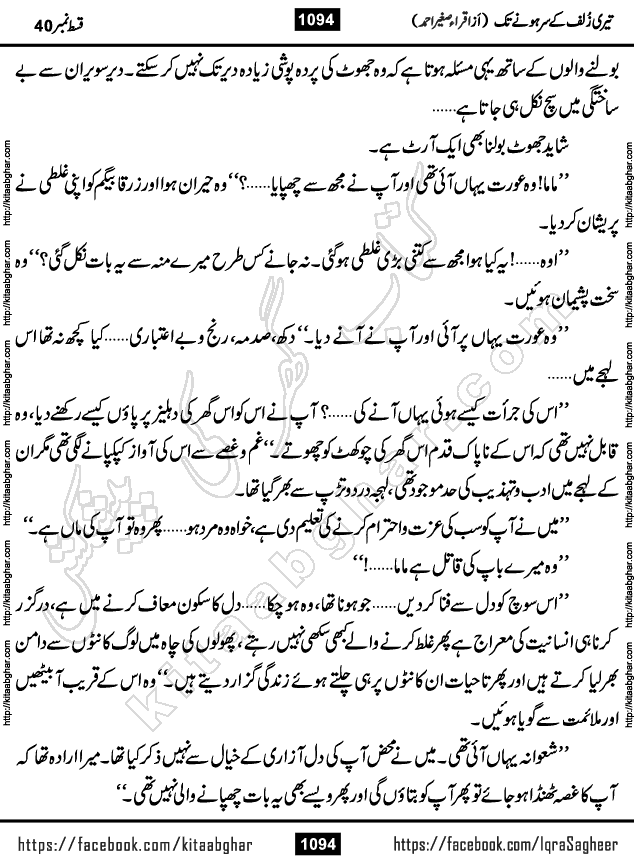 تیری زُلف کے سر ہونے تک (از اقراء صغیر احمد)
1094
قسط نمبر 40
بولنے والوں کے ساتھ یہی مسئلہ ہوتا ہے کہ وہ جھوٹ کی پردہ پوشی زیادہ دیر تک نہیں کر سکتے۔ دیر سویر ان سے بے
ساختگی میں سچ نکل ہی جاتا ہے......
شاید جھوٹ بولنا بھی ایک آرٹ ہے۔
’’ماما! وہ عورت یہاں آئی تھی اور آپ نے مجھ سے چھپایا......؟‘‘ وہ حیران ہوا اور زرقا بیگم کو اپنی غلطی نے
پریشان کر دیا۔
’’اوہ......! یہ کیا ہوا مجھ سے کتنی بڑی غلطی ہو گئی۔ نہ جانے کس طرح میرے منہ سے یہ بات نکل گئی؟‘‘ وہ
سخت پشیمان ہوئیں۔
’’وہ عورت یہاں پر آئی اور آپ نے آنے دیا۔‘‘ دکھ، صدمہ، رنج و بے اعتباری...... کیا کچھ نہ تھا اس
لہجے میں......
’’اس کی جرأت کیسے ہوئی یہاں آنے کی......؟ آپ نے اس کو اس گھر کی دہلیز پر پاؤں کیسے رکھنے دیا، وہ
قابل نہیں تھی کہ اس کے ناپاک قدم اس گھر کی چوکھٹ کو چھوتے۔‘‘ غم و غصے سے اس کی آواز کپکپانے لگی تھی مگر ان
کے لہجے میں ادب و تہذیب کی حد موجود تھی، لہجہ درد و تڑپ سے بھر گیا تھا۔
’’میں نے آپ کو سب کی عزت و احترام کرنے کی تعلیم دی ہے، خواہ وہ مرد ہو...... پھر وہ تو آپ کی ماں ہے۔‘‘
’’وہ میرے باپ کی قاتل ہے ماما......!‘‘
’’اس سوچ کو دل سے فنا کر دیں...... جو ہونا تھا، وہ ہو چکا...... دل کا سکون معاف کرنے میں ہے، درگزر
کرنا ہی انسانیت کی معراج ہے پھر غلط کرنے والے کبھی سکھی نہیں رہتے، پھولوں کی چاہ میں لوگ کانٹوں سے دامن
بھر لیا کرتے ہیں اور پھر تا حیات ان کانٹوں پر ہی چلتے ہوئے زندگی گزار دیتے ہیں۔‘‘ وہ اس کے قریب آ بیٹھیں
اور ملائمت سے گویا ہوئیں۔
’’شعوانہ یہاں آئی تھی۔ میں نے محض آپ کی دل آزاری کے خیال سے نہیں ذکر کیا تھا۔ میرا ارادہ تھا کہ
آپ کا غصہ ٹھنڈا ہو جائے تو پھر آپ کو بتاؤں گی اور پھر ویسے بھی یہ بات چھپانے والی نہیں تھی۔‘‘
http://kitaabghar.com
http://kitaabghar.com
http://kitaabghar.com
http://kitaabghar.com
http://kitaabghar.com
http://kitaabghar.com
http://kitaabghar.com
http://kitaabghar.com
http://kitaabghar.com
http://kitaabghar.com
http://kitaabghar.com
http://kitaabghar.com
کتاب گھر کی پیشکش
kitaabghar.com
https://facebook.com/kitaabghar
1094
https://facebook.com/IqraSagheer